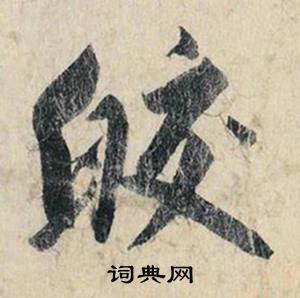 皎
词典网